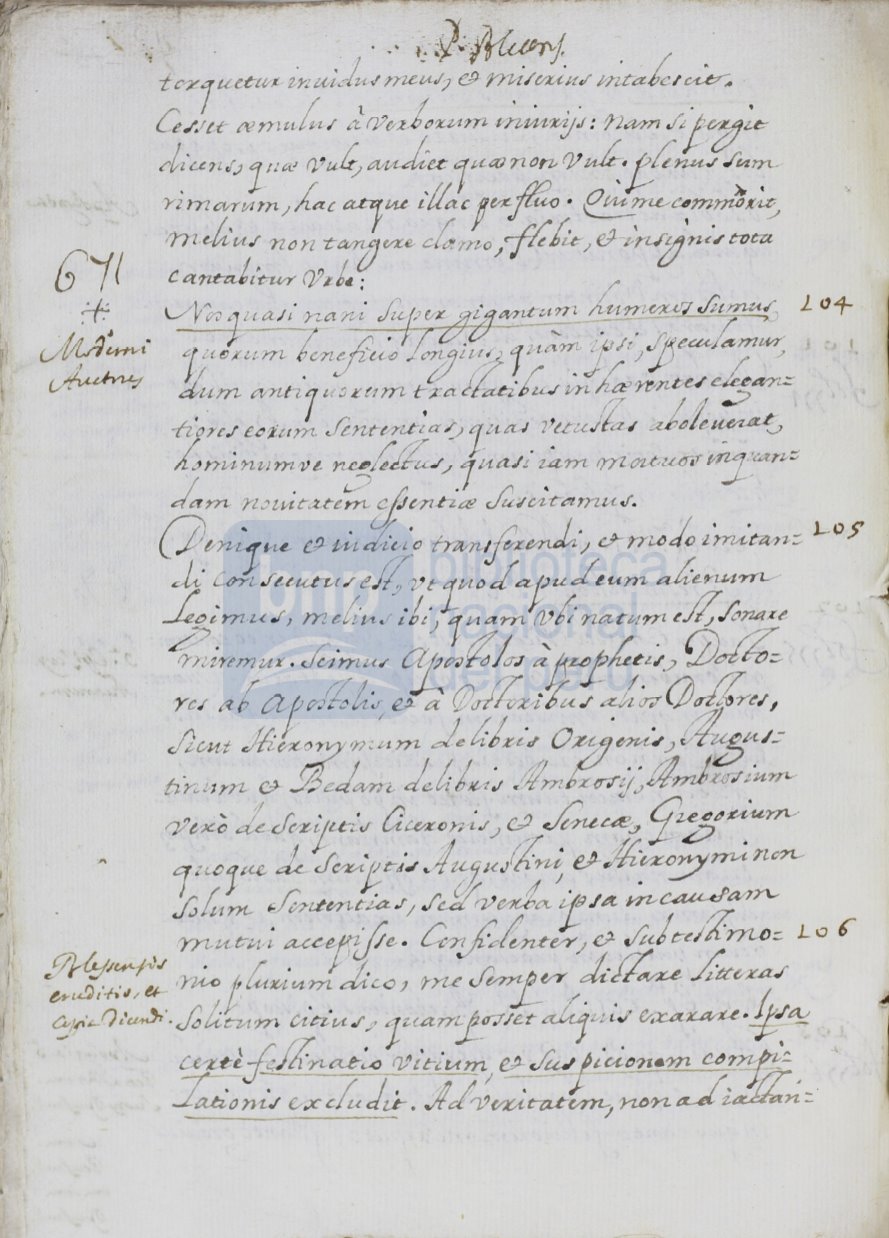 P. Blesens.
torquetur inuidus meus, & miserius intabescit.
Cesset æmulus à verborum iniurijs: nam si pergit
dicens, quæ vult, audiet quæ non vult. plenus sum
rimarum, hac atque illac perfluo. Qui me commôrit,
melius non tangere clamo, flebit, & insignis tota
cantabitur Vrbe:
671
Moderni
Auctores
Nos quasi nani super gigantum humeros sumus, 104
quorum beneficio longius, quàm ipsi, speculamur,
dum antiquorum tractatibus inhærentes elegan=
tiores eorum sententias, quas vetustas aboleuerat,
hominumve neglectus, quasi iam mortuos in quan=
dam nouitatem essentiæ suscitamus.
Denique & iudicio transferendi, & modo imitan= 105
di consecutus est, vt quod apud eum alienum
legimus, melius ibi, quam vbi natum est, sonare
miremur. Scimus Apostolos à prophetis, Docto=
res ab Apostolis, & à Doctoribus alios Doctores,
sicut Hieronymum de libris Origenis, Augus=
tinum & Bedam de libris Ambrosij, Ambrosium
verò de scriptis Ciceronis, & Senecæ, Gregorium
quoque de scriptis Augustini, & Hieronymi non
solum sententias, sed verba ipsa in causam
mutui accepisse. Confidenter, & sub testimo= 106
Blessensis
eruditis, et
Dicendi.
nio plurium dico, me semper dictare litteras
solitum citius, quam posset aliquis exarare. Ipsa
certè festinatio vitium, & suspicionem compi=
lationis excludit. Ad veritatem, non ad iactan=
bnp biblioteca
nacional
del perú